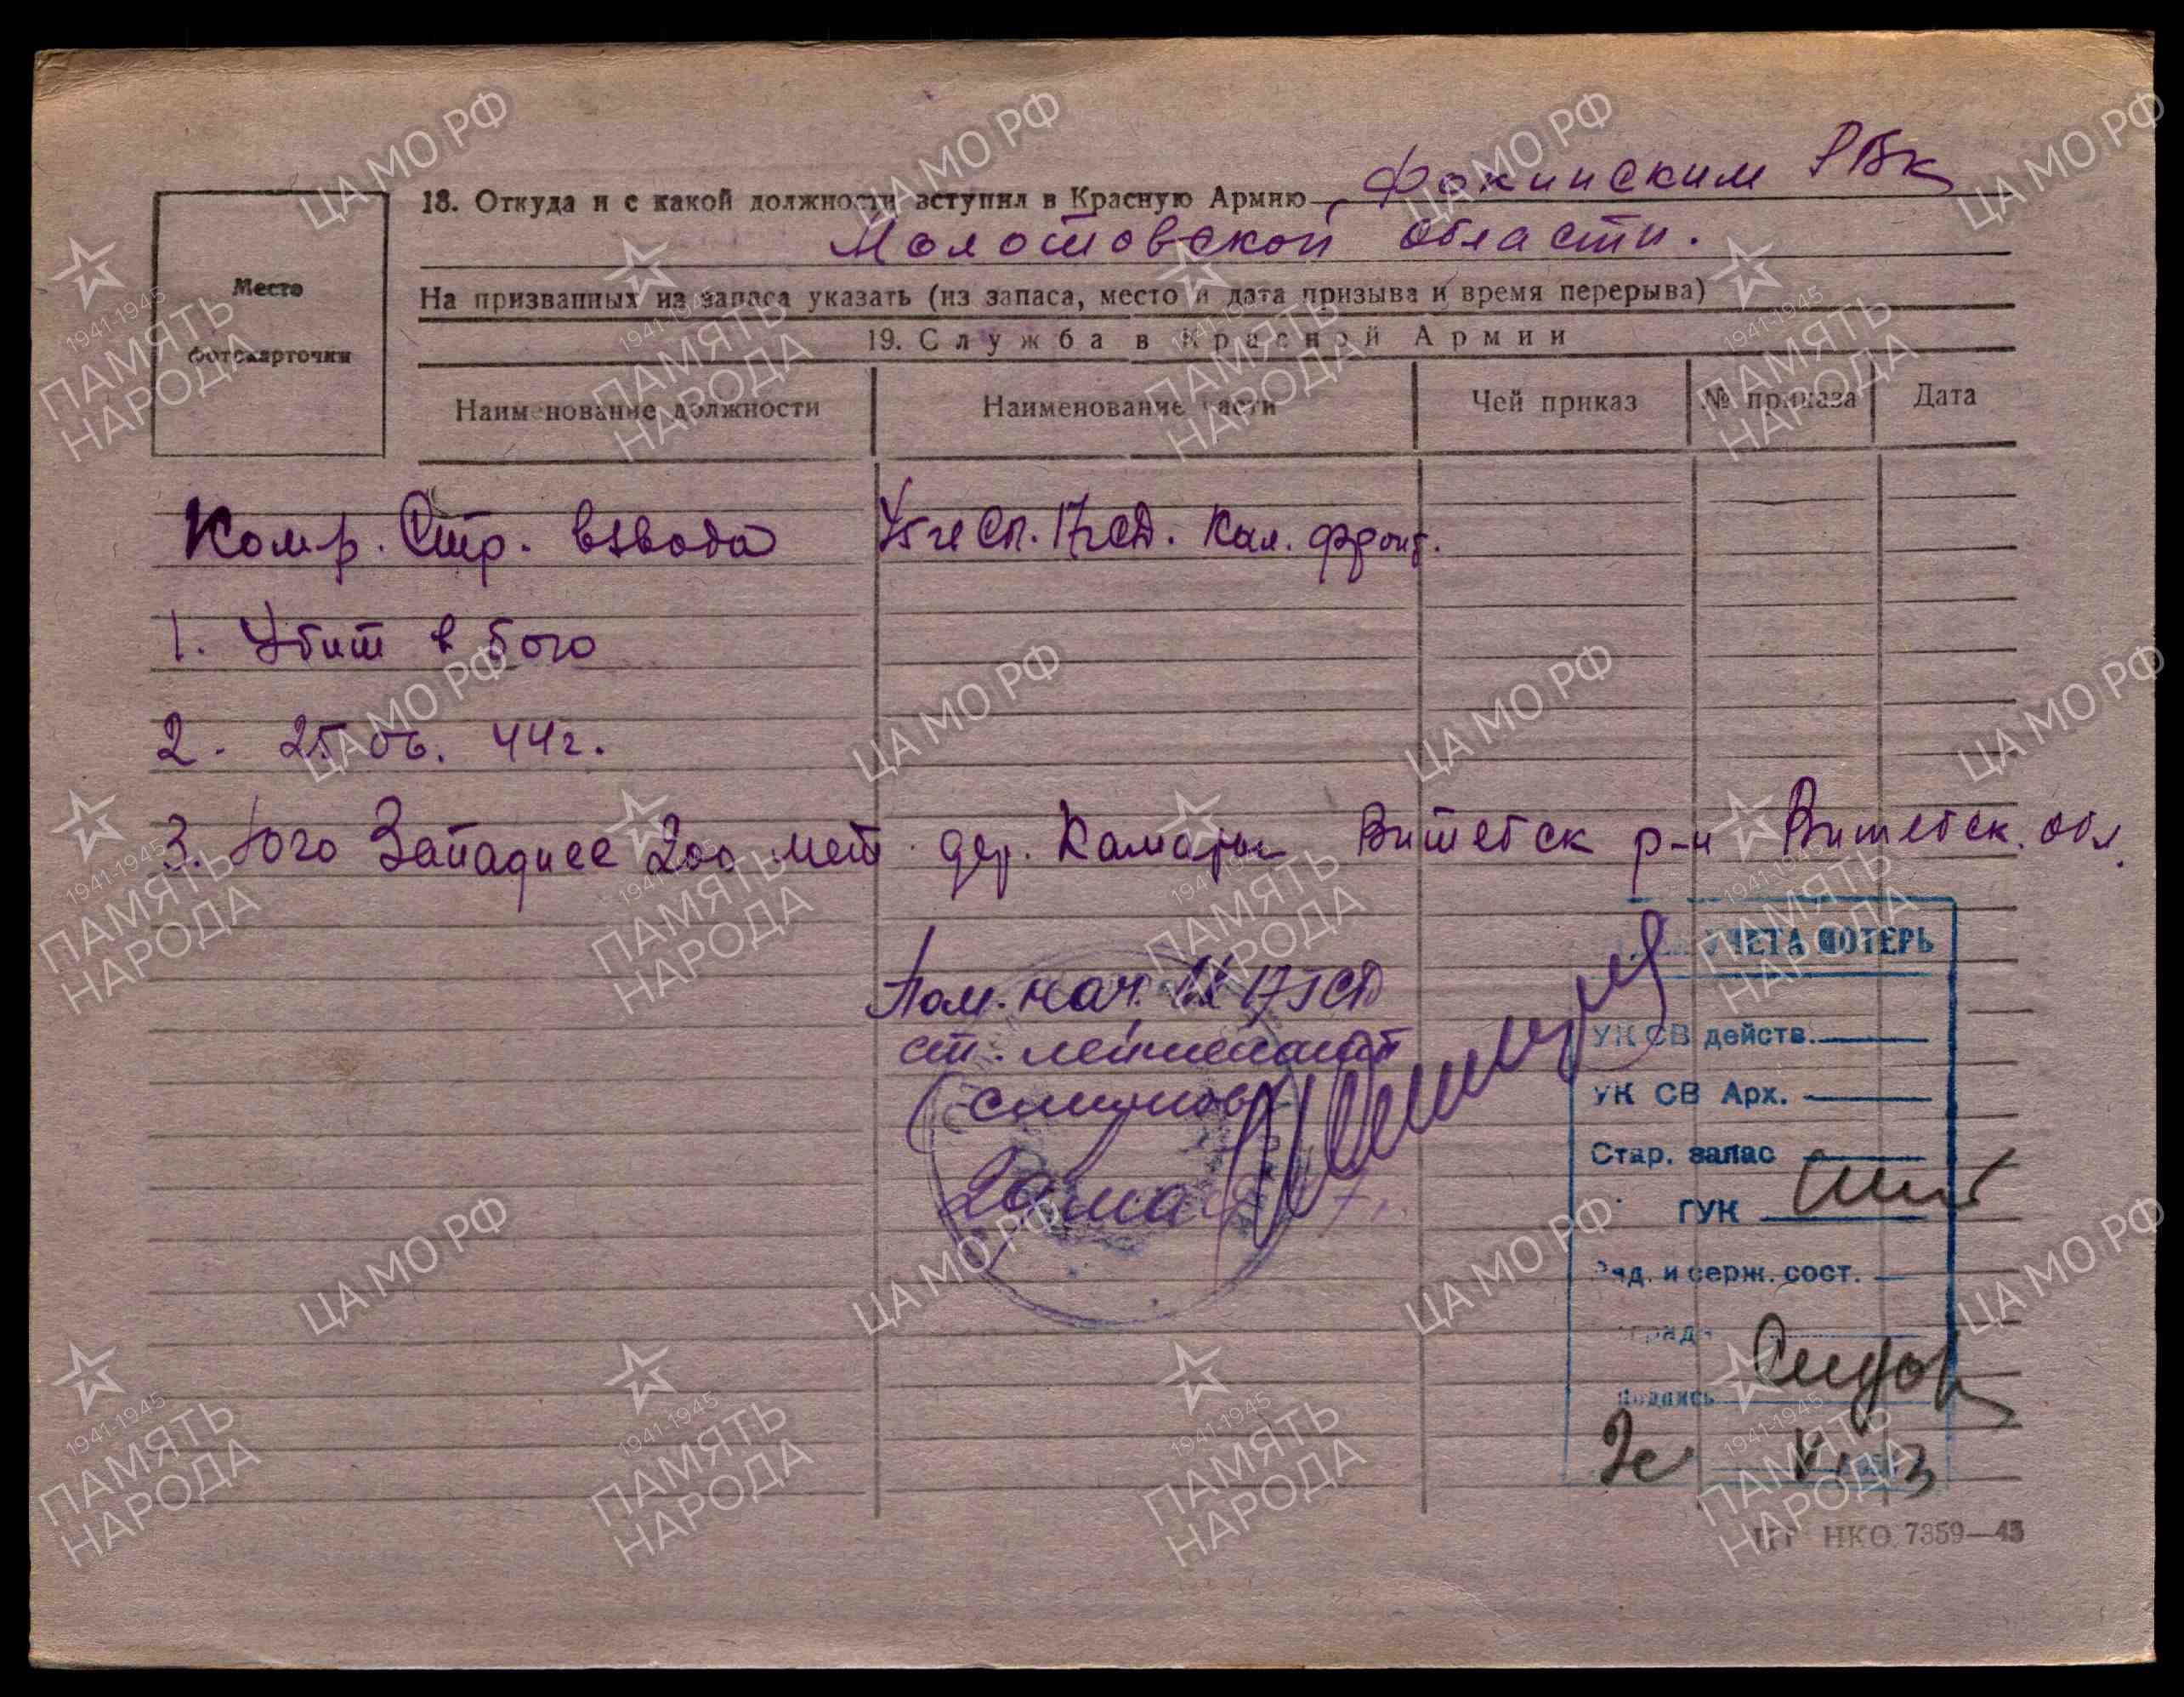 18. Откуда и с какой должности вступил в Красную Армию Фокинским РВк
Молотовской области.
На призванных из запаса указать (из запаса, место и дата призыва и время перерыва)
Место
фотокарточки
19. Служба в Красной Армии
Наименование должности Наименование части Чей приказ № приказа Дата
Комр. Стр. взвода сп. 17 сд. Кал. фронт.
1. Убит в бою
2. 25.06. 44г.
3. Юго Западнее 200 мет. дер. Камары Витебск р-н Витебск. обл.
УЧЕТА ПОТЕРЬ
Пом. нач.
ст. лейтенант
УК СВ действ.
УК СВ Арх.
Стар. запас
ГУК
Ряд. и серж. сост.
подпись
НКО 7359—43
ЦА МО РФ
1941-1945
ПАМЯТЬ
НАРОДА